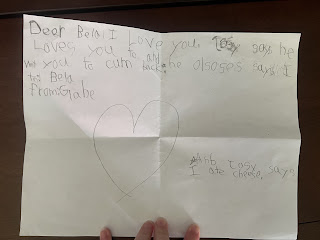 Dear Bela I Love you. Cosy says he
Loves you to and
you to cum back he alsoses says I
Bela
from: Gabe
And Cosy says
I ate cheese.